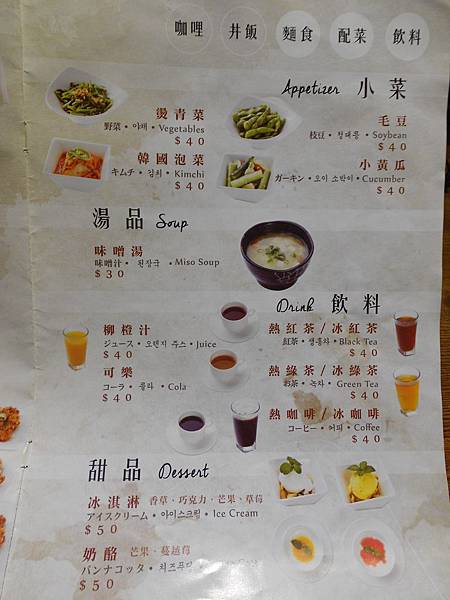 咖哩 井飯 麵食 配菜 飲料
Appetizer 小菜
燙青菜
野菜・야채・Vegetables
$40
毛豆
枝豆・청대콩・Soybean
$40
韓國泡菜
キムチ・김치・Kimchi
$40
小黃瓜
ガーキン・오이 소박이・Cucumber
$40
湯品 Soup
味噌湯
味噌汁・된장국・Miso Soup
$30
Drink 飲料
柳橙汁
ジュース・오렌지 주스・Juice
$40
熱紅茶/冰紅茶
紅茶・생홍차・Black Tea
$40
可樂
コーラ・콜라・Cola
$40
熱綠茶/冰綠茶
お茶・녹차・Green Tea
$40
熱咖啡/冰咖啡
コーヒー・커피・Coffee
$40
甜品 Dessert
冰淇淋 香草、巧克力、芒果、草莓
アイスクリーム・아이스크림・Ice Cream
$50
奶酪 芒果、蔓越莓
パンナコッタ・치즈푸딩・
$50